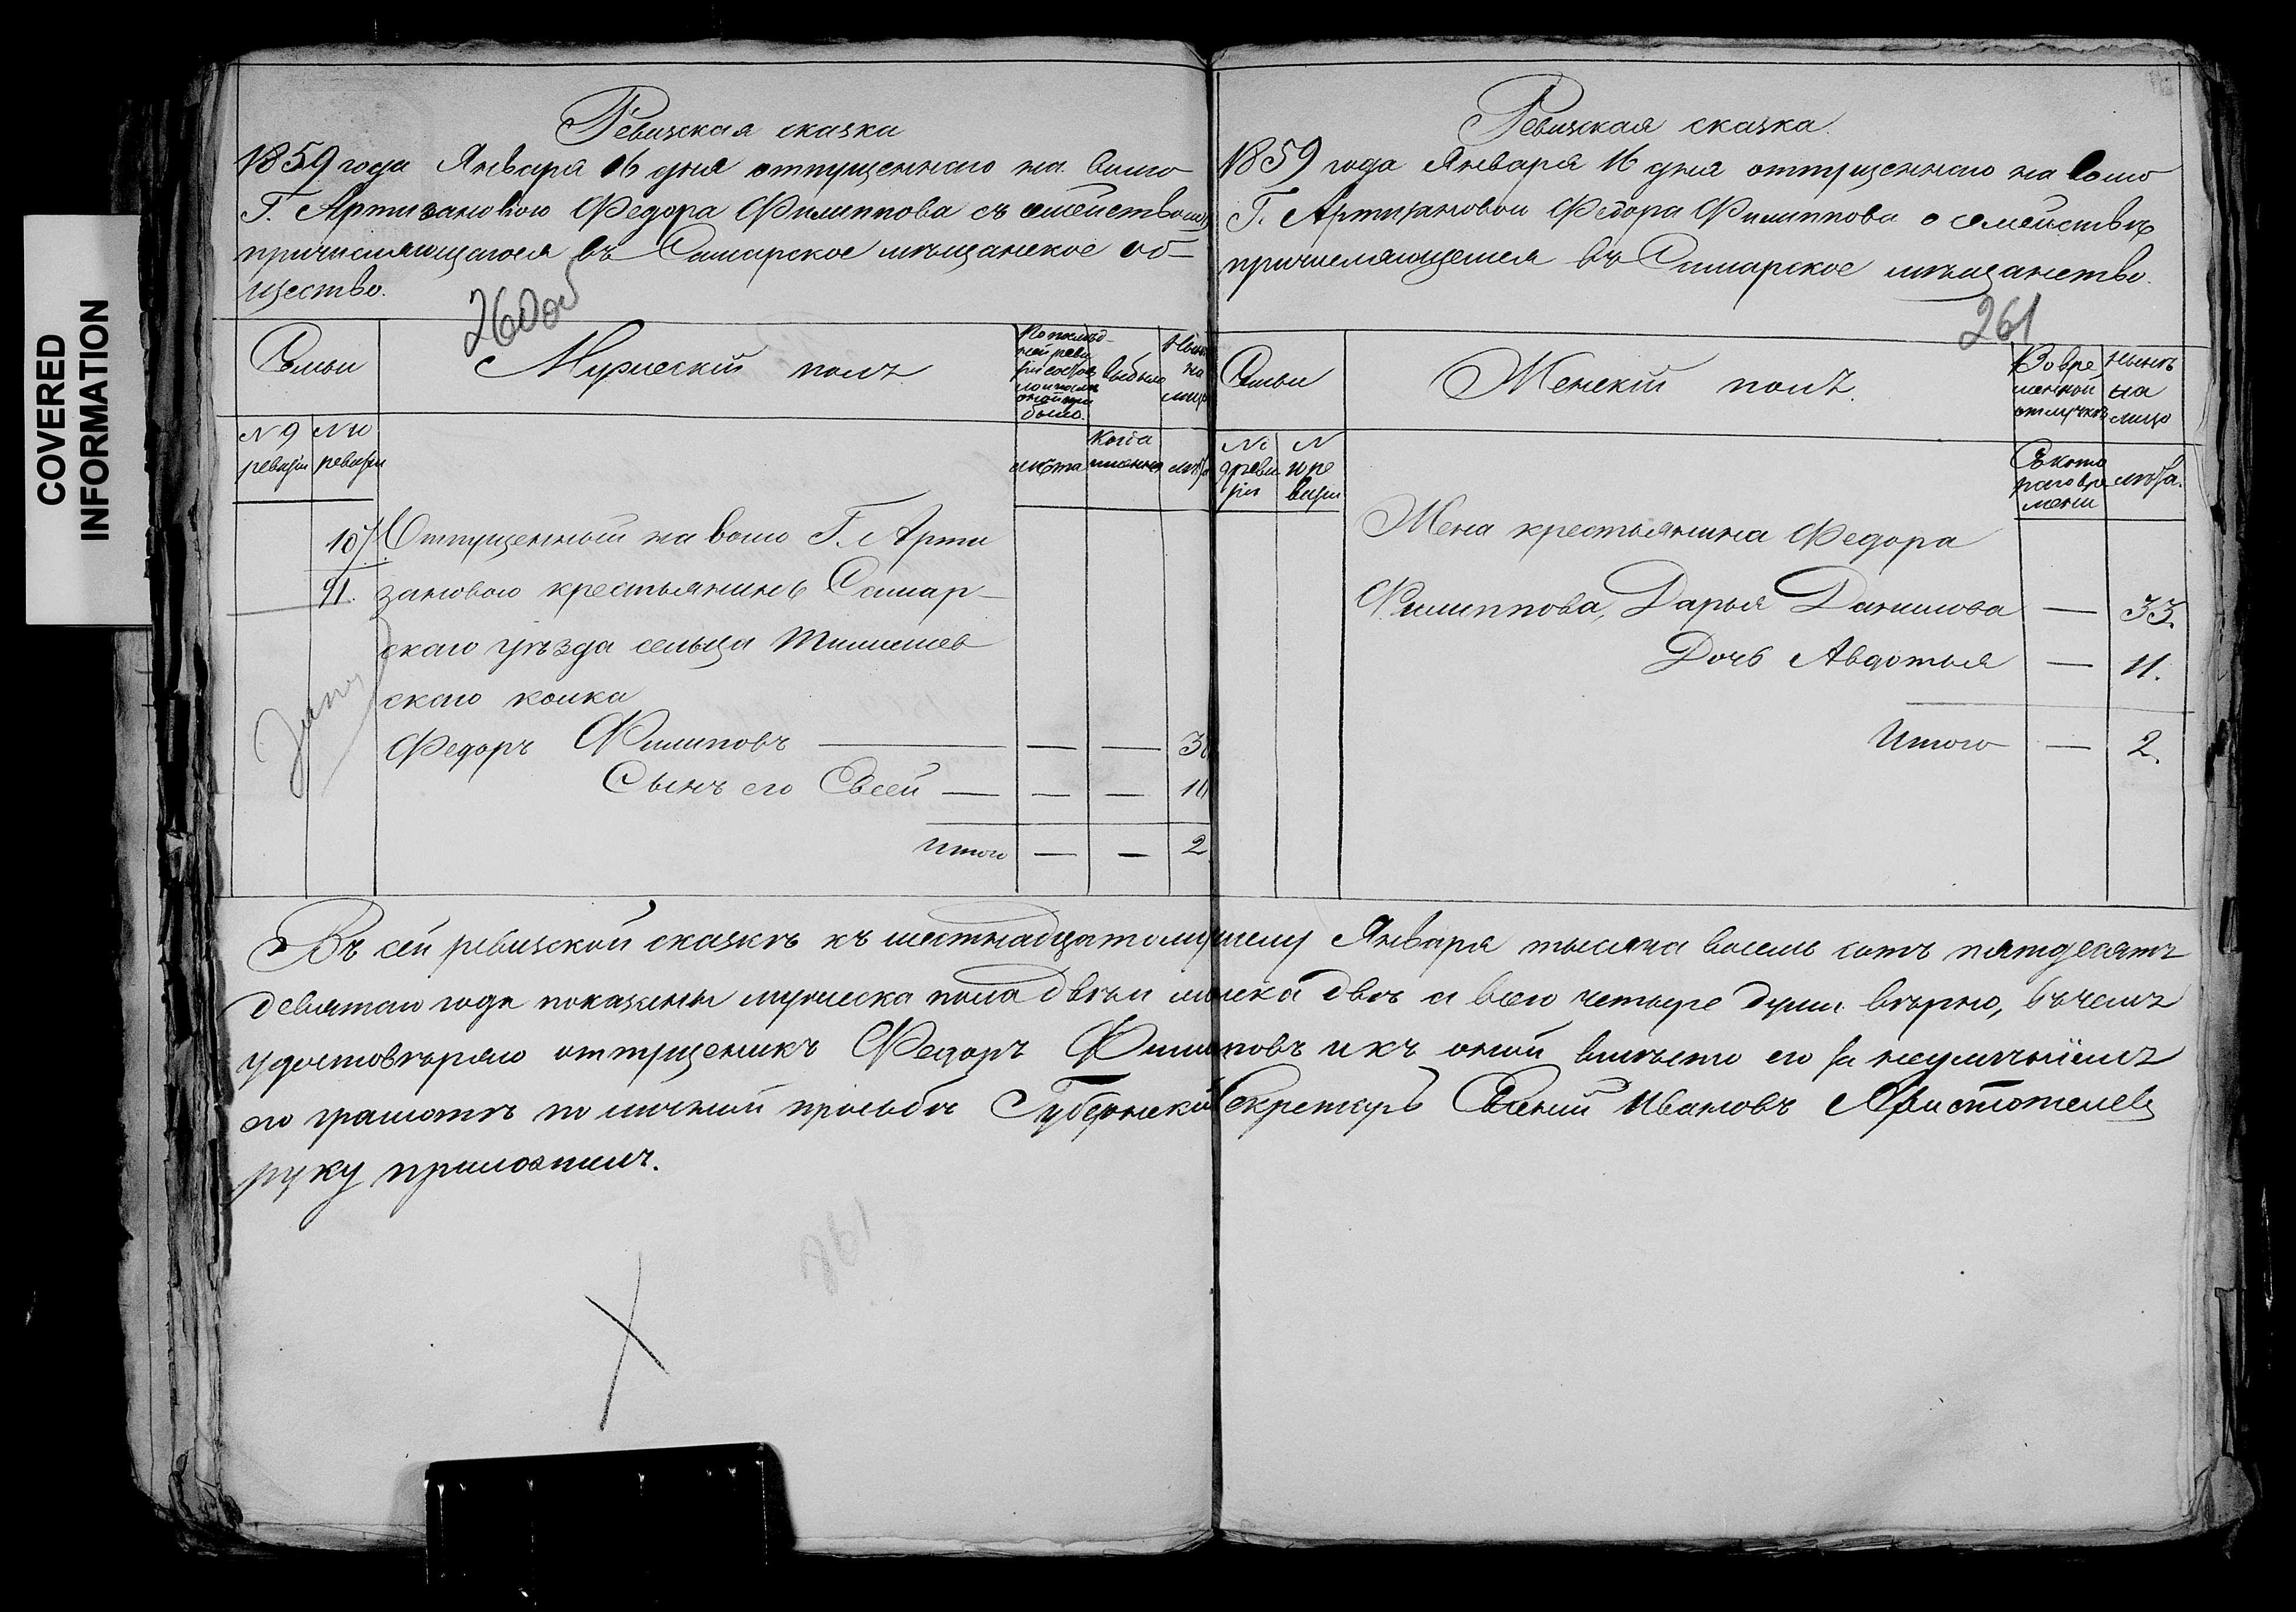 COVERED
INFORMATION
Ревизская сказка
1859 года Января 16 дня отпущеннаго на волю
Г. Артизановою Федора Филиппова съ семействомъ
причисляющагося въ Самарское мѣщанское об-
щество.
260 об
Семьи
Мужескій полъ
По послѣд-
ней реви
зіи состоя
ло и послѣ
оной при
было.
выбыло
Нынѣ
на
лицо
N 9
ревизіи
N 10
ревизіи
лѣта
Когда
именно
лѣта
107
91.
Отпущенный на волю Г. Арти
зановою крестьянинъ Самар-
скаго уѣзда сельца
скаго колка
Федоръ Филиповъ — — — 3
Сынъ его Евсей — — — 1
Итого — — 2
Ревизская сказка.
1859 года Января 16 дня отпущеннаго на волю
Г. Артизановой Федора Филиппова о семействѣ
причисляющемся въ Самарское мѣщанство.
261
Семьи
Женскій полъ.
Во вре
менной
отлучкѣ
Нынѣ
на
лицо
N
9 реви
зіи
N
10 ре
визіи
Съ кото
раго вре
мени
лѣта.
Жена крестьянина Федора
Филиппова, Дарья Данилова — 33.
Дочь Авдотья — 11.
Итого — 2.
Въ сей ревизской сказкѣ къ шестнадцатому Января тысяча восемь сотъ пятдесятъ
девятаго года показаны мужеска пола двѣ и женска двѣ а всего четыре души вѣрно, въ чемъ
удостовѣряю отпущеникъ Федоръ Филиповъ и къ оной вмѣсто его за неумѣніемъ
по грамотѣ по личной прозьбѣ Губернскій Секретарь Ивановъ Аристотелевъ
руку приложилъ.
261